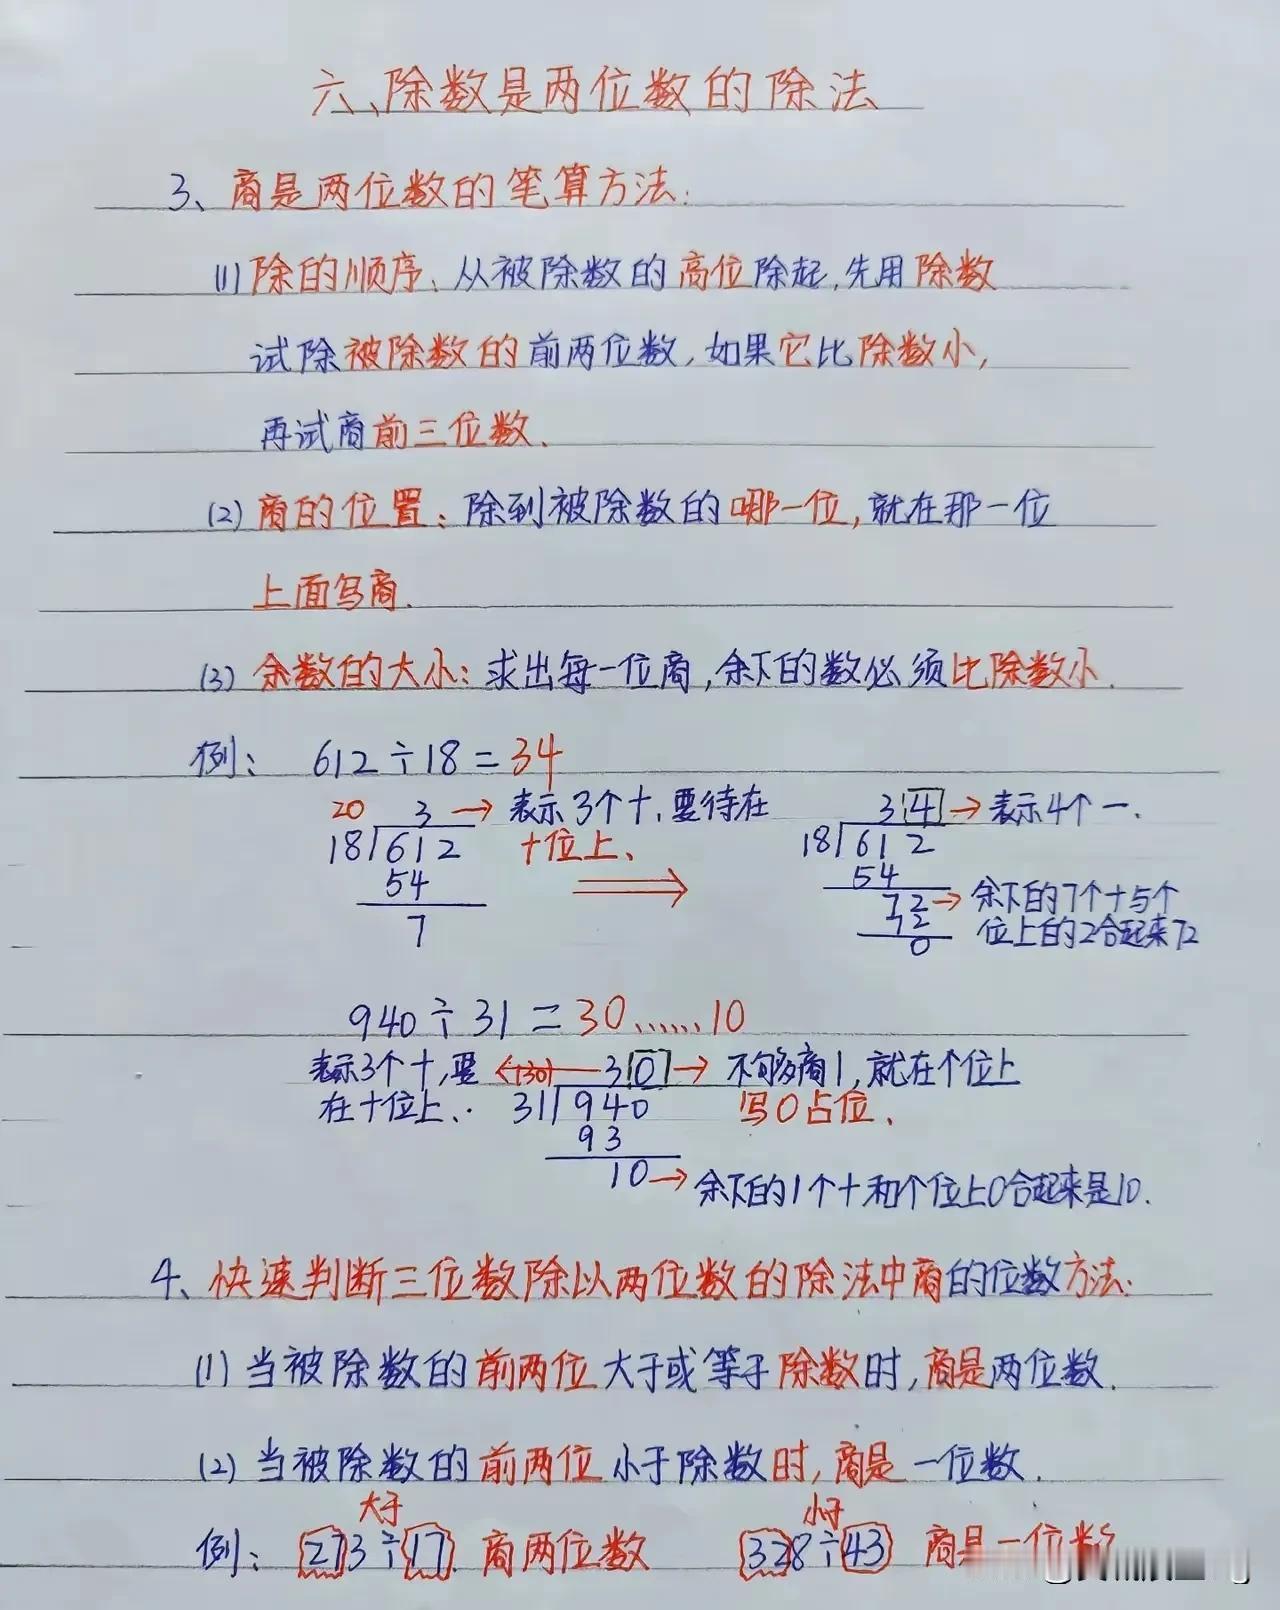 六、除数是两位数的除法
3、商是两位数的笔算方法:
(1)除的顺序:从被除数的高位除起,先用除数
试除被除数的前两位数,如果它比除数小,
再试商前三位数.
(2)商的位置:除到被除数的哪一位,就在那一位
上面写商.
(3)余数的大小:求出每一位商,余下的数必须比除数小.
例: 612÷18=34
20 3 → 表示3个十,要待在
18 612 十位上、
54
7
3 4 → 表示4个一.
18 612
54
72 → 余下的7个十与个
72 位上的2合起来72
0
940÷31=30……10
表示3个十,要 ←(30)— 3 0 → 不够商1,就在个位上
在十位上. 31 940 写0占位.
93
10 → 余下的1个十和个位上0合起来是10.
4、快速判断三位数除以两位数的除法中商的位数方法:
(1)当被除数的前两位大于或等于除数时,商是两位数.
(2)当被除数的前两位小于除数时,商是一位数.
大于 小于
例: 273÷17. 商两位数 328÷43 商是一位数